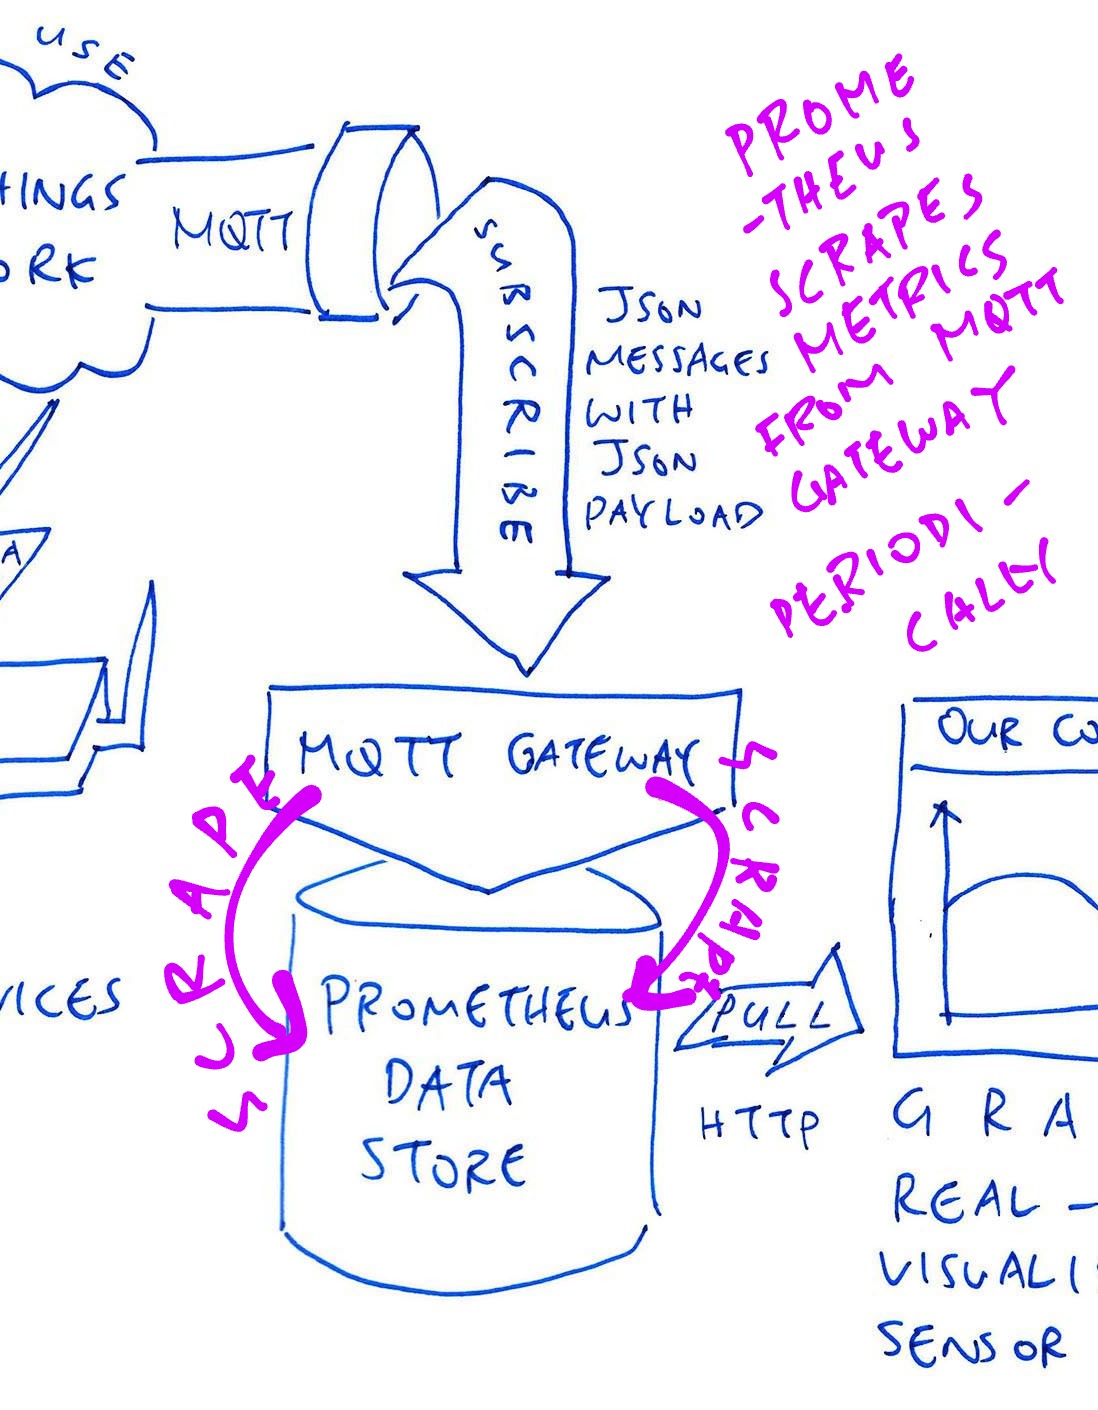 USE
HINGS
ORK
MQTT
SUBSCRIBE
JSON
MESSAGES
WITH
JSON
PAYLOAD
PROME
-THEUS
SCRAPES
METRICS
FROM MQTT
GATEWAY
PERIODI-
CALLY
A
MQTT GATEWAY
SCRAPE
SCRAPE
PROMETHEUS
DATA
STORE
VICES
PULL
HTTP
OUR CO
GRA
REAL-
VISUALI
SENSOR